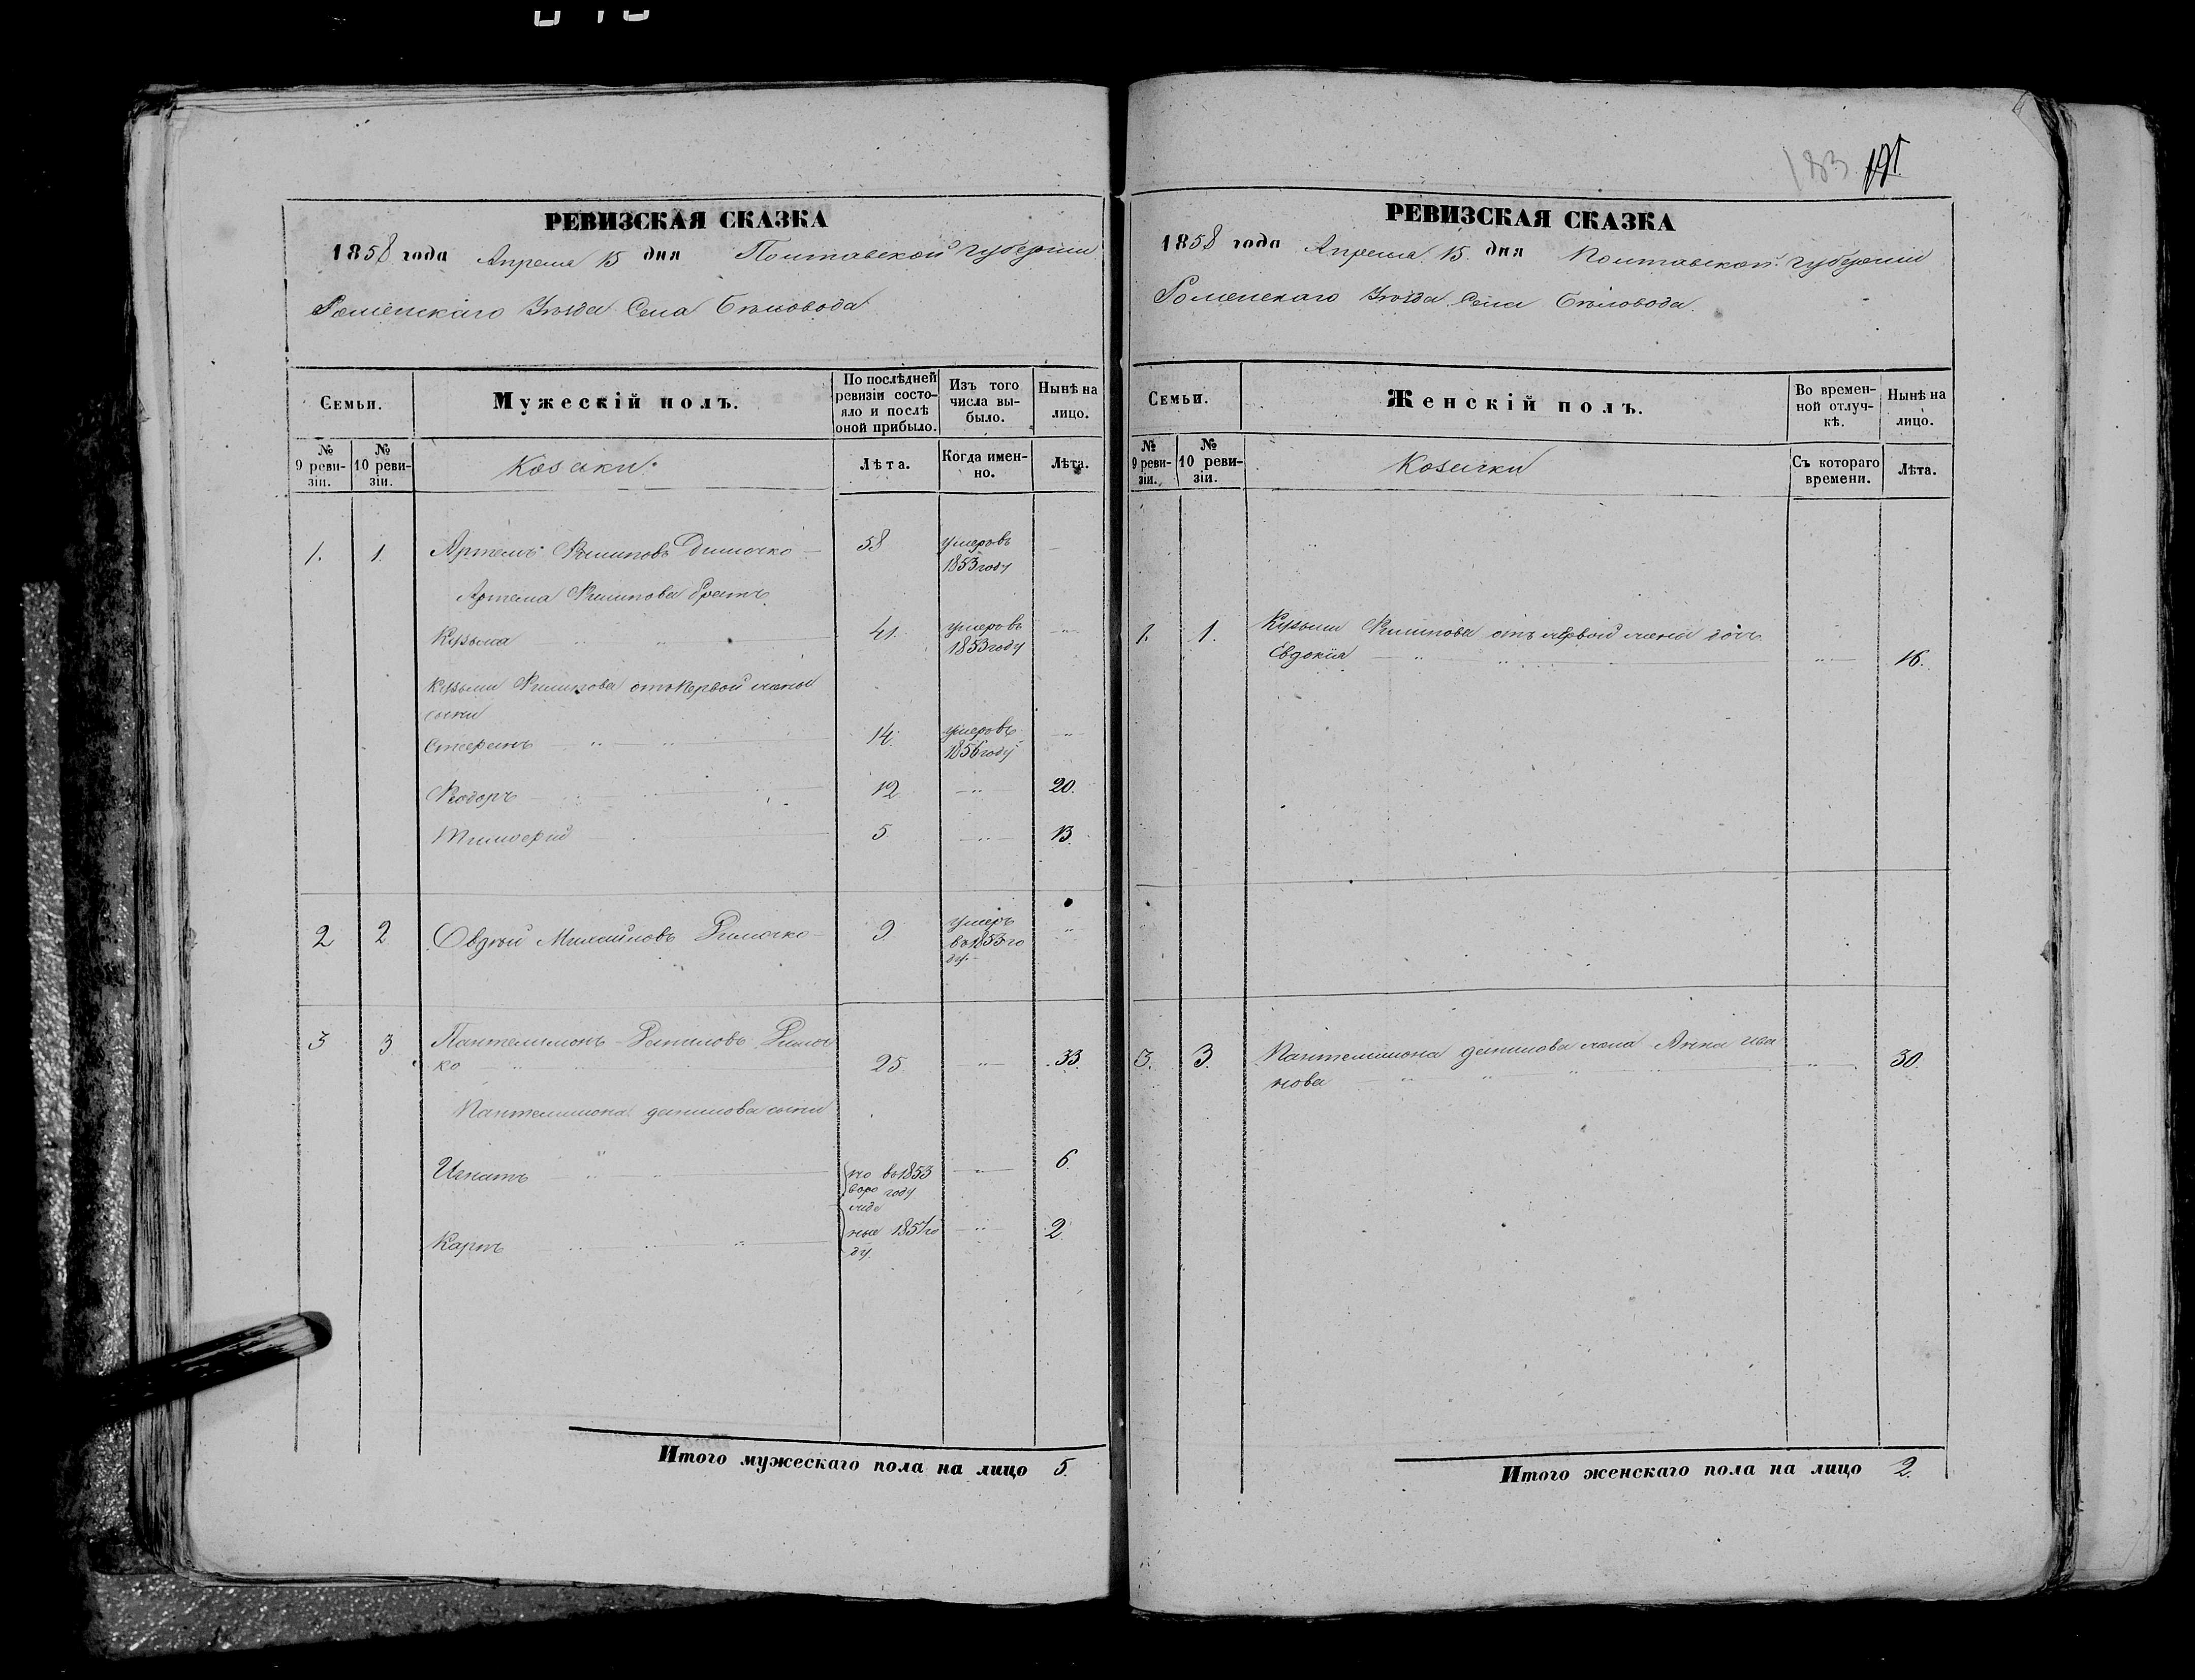 РЕВИЗСКАЯ СКАЗКА
1858 года Апреля 15 дня Полтавской губернии
Роменскаго Уезда Села Беловода
Семьи.
Мужескій полъ.
По послѣдней ревизіи состояло и послѣ оной прибыло.
Изъ того числа выбыло.
Ныне на лицо.
№ 9 ревизіи.
№ 10 ревизіи.
Козаки.
Лѣта.
Когда именно.
Лѣта.
1. 1. Артемъ Филиповъ 58 умеръ въ
1853 году
Артема Филипова братъ
Кузьма 41. умеръ въ
1853 году
Кузьмы Филипова отъ первой жены
сыны
Стефанъ 14. умеръ въ
1856 году
Феодоръ 12 20.
Тимофей 5 13.
2 2 Овдей Михайловъ 9 умеръ
въ 1853 го
ду.
3 3 Пантелимонъ Даниловъ
ко 25 33.
Пантелимона Данилова сыны
Игнатъ но въ 1853 6.
воро году
жде
Карпъ ные 1857 го 2.
ду.
Итого мужескаго пола на лицо 5.
183
РЕВИЗСКАЯ СКАЗКА
1858 года Апреля 15 дня Полтавской губернии
Роменскаго Уезда Села Беловода.
Семьи.
Женскій полъ.
Во временной отлучкѣ.
Нынѣ на лицо.
№ 9 ревизіи.
№ 10 ревизіи.
Козачки
Съ котораго времени.
Лѣта.
1. 1. Кузьмы Филипова отъ первой жены дочь
Евдокія 16.
3. 3. Пантелимона Данилова жена Анна Ива
нова 30.
Итого женскаго пола на лицо 2.